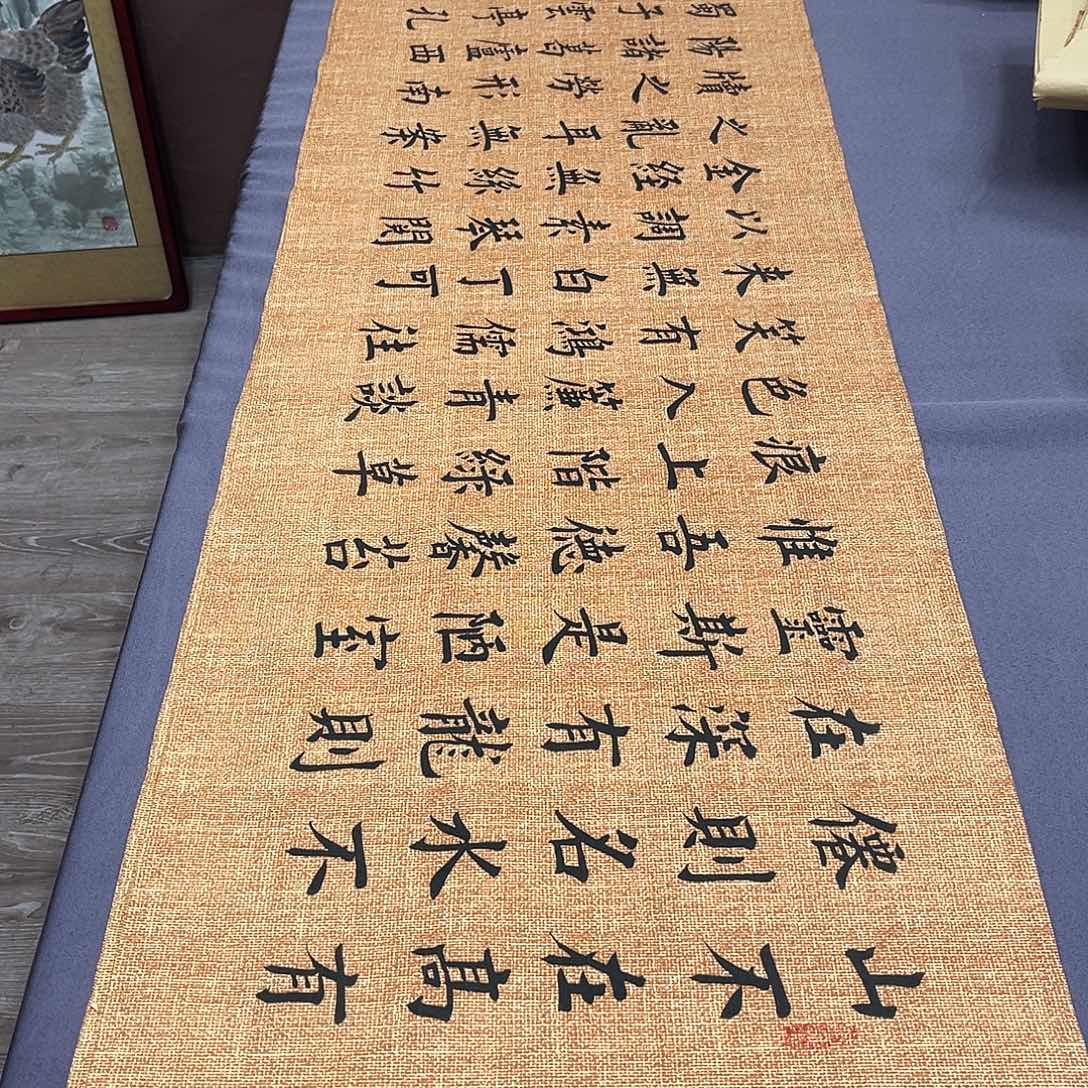 山不在高有
僊則名水不
在深有龍則
靈斯是陋室
惟吾德馨苔
痕上階綠草
色入簾青談
笑有鴻儒往
来無白丁可
以調素琴閱
金經無絲竹
之亂耳無案
牘之勞形南
陽諸葛廬西
蜀子雲亭孔